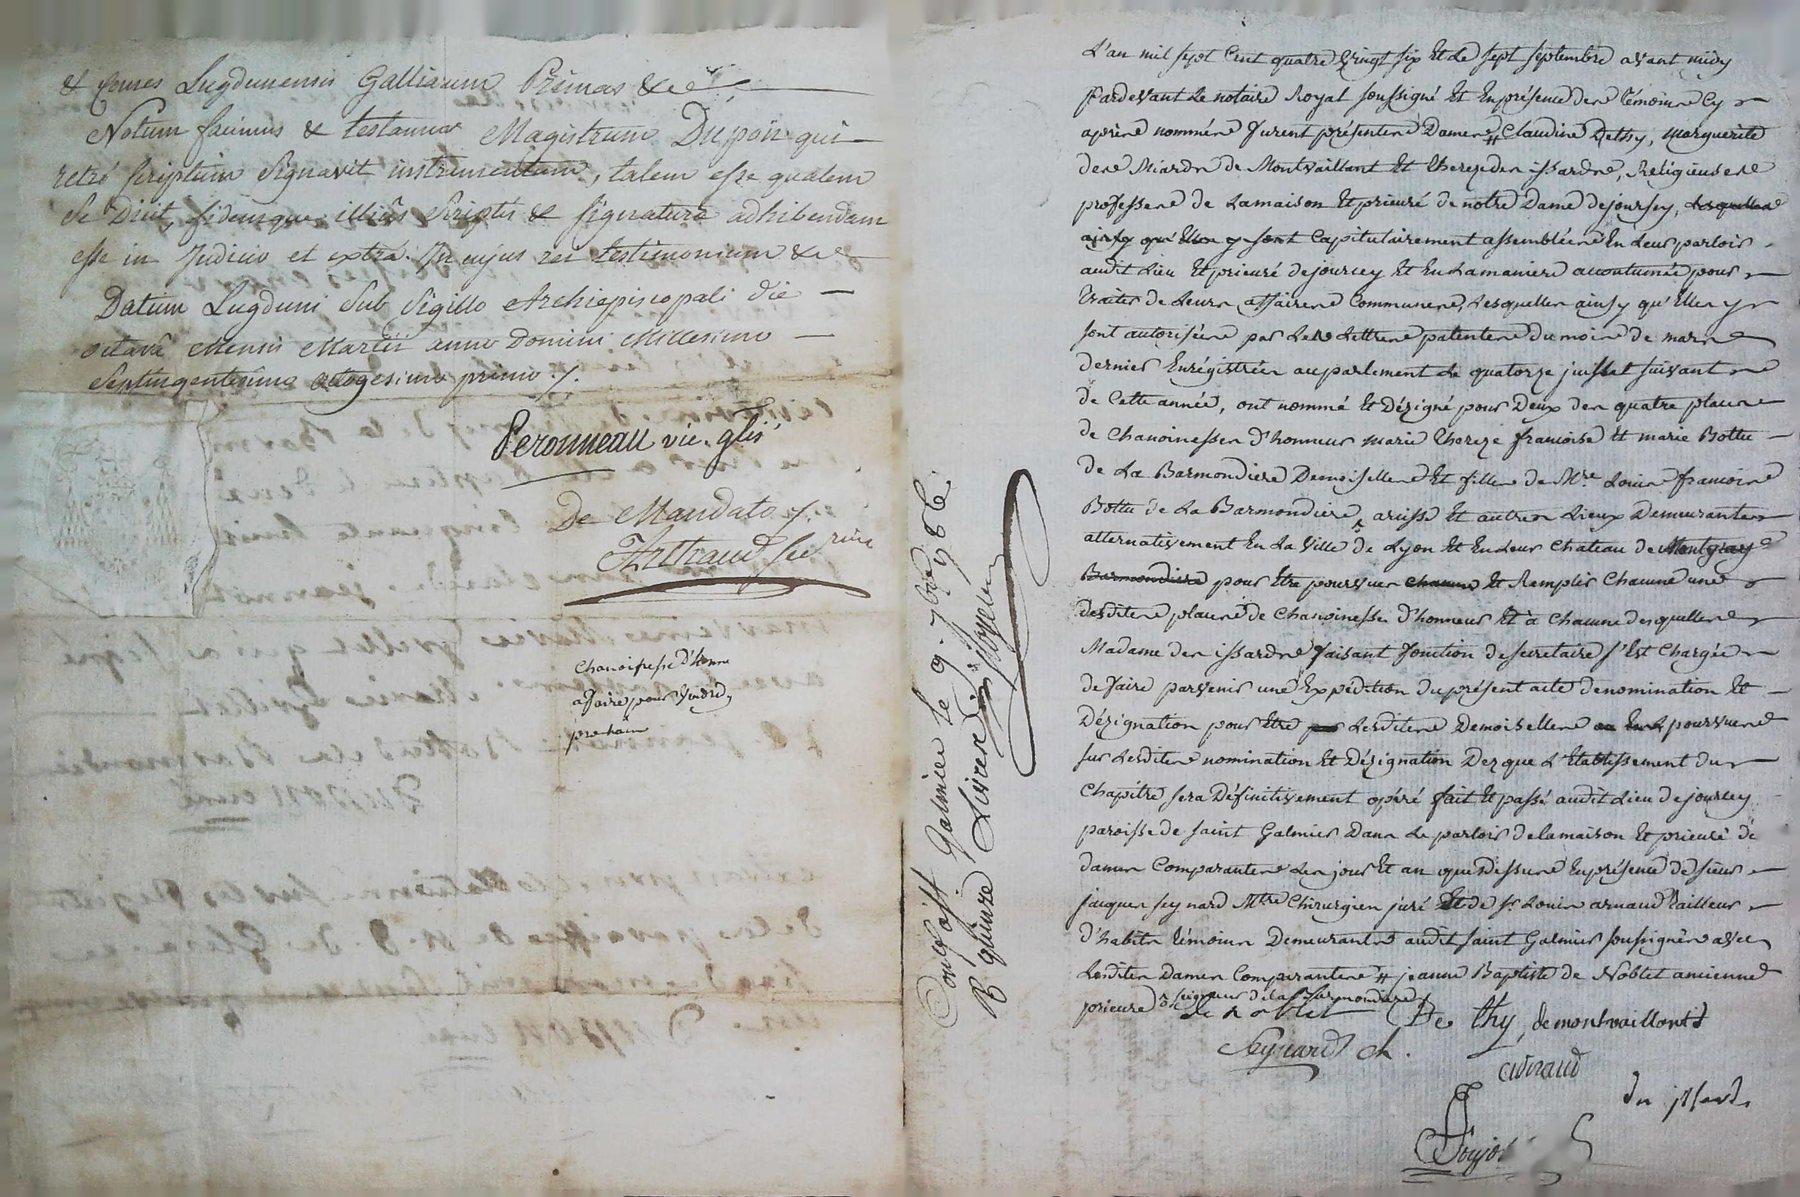 & Comes Lugdunensis Galliarum Primas &c
Notum facimus & testamur Magistrum Dupon qui
retro scriptum signavit instrumentum, talem esse qualem
se Dicit, fidemque illius scriptis & signaturæ adhibendam
esse in Judicio et extra. In cujus rei testimonium &c
Datum Lugduni sub sigillo Archiepiscopali die
octavâ Mensis Martii anno Domini Millesimo
Septingentesimo octogesimo primo ./.
Peronneau vic. glis
De Mandato ./.
Arthaud, Secrire
Chanoinesse d'honne
afaire pour
prochain
L'an mil sept Cent quatre vingt six Et Le sept septembre avant midy
Pardevant Le notaire Royal soussigné Et En présence des témoins Cy
après nommés furent présentes Dames # Claudine Dethy, Marguerite
des Miards de Montvaillant Et Thereze des issards, Religieuses
professes de Lamaison Et prieuré de notre Dame de jourcey, Lesquelles
ainsy qu'Elles y sont Capitulairement assemblées En Leur parloir
audit Lieu Et prieuré de jourcey Et En Lamaniere accoutumée pour
traiter de Leurs affaires Communes, Lesquelles ainsy qu'Elles y
sont autorisées par Les Lettres patentes du mois de mars
dernier Enrégistrées au parlement Le quatorze juillet suivant
de Cette année, ont nommé Et Dézigné pour Deux des quatre places
de Chanoinesses d'honneur marie thereze françoise Et marie Bottu
de La Barmondiere Demoiselles Et filles de Mre Louis françois
Bottu de La Barmondiere, arcisse Et autres Lieux Demeurantes
alternativement En La Ville de Lyon Et En Leur Chateau de Montgray
Barmondiere pour Etre pourvues chacune Et Remplir Chacune une
desdites places de Chanoinesses d'honneur Et à Chacune desquelles
Madame des issards faisant fonction de secretaire s'Est Chargée
de faire parvenir une Expédition du présent acte de nomination Et
Dézignation pour Etre par Lesdites Demoiselles pourvues
sur Lesdites nomination Et Dézignation Dez que L'Etablissement du
Chapitre sera Définitivement opéré fait Et passé audit Lieu de jourcey
paroisse de saint Galmier Dans Le parloir de lamaison Et prieuré de
dames Comparantes Les jour Et an que Dessus En présence de sieur
jacques seynard Mtre Chirurgien juré Et de Sr Louis arnaud tailleur
d'habits témoins Demeurants audit saint Galmier soussignés avec
Lesdites Dames Comparantes # jeanne Baptiste de Noblet ancienne
prieure & seigneur de la Barmondiere
de noblet De thy, de montvaillant
Seynard ch.
arnaud
des issards
Controllé a St Galmier le 9 7bre 1786.
Reçu quinze Livres